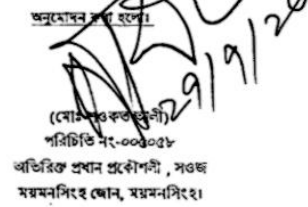 অনুমোদন করা হলো।
২৯/৯/২
(মোঃ শওকত আলী)
পরিচিতি নং-০০১০৫৮
অতিরিক্ত প্রধান প্রকৌশলী , সওজ
ময়মনসিংহ জোন, ময়মনসিংহ।